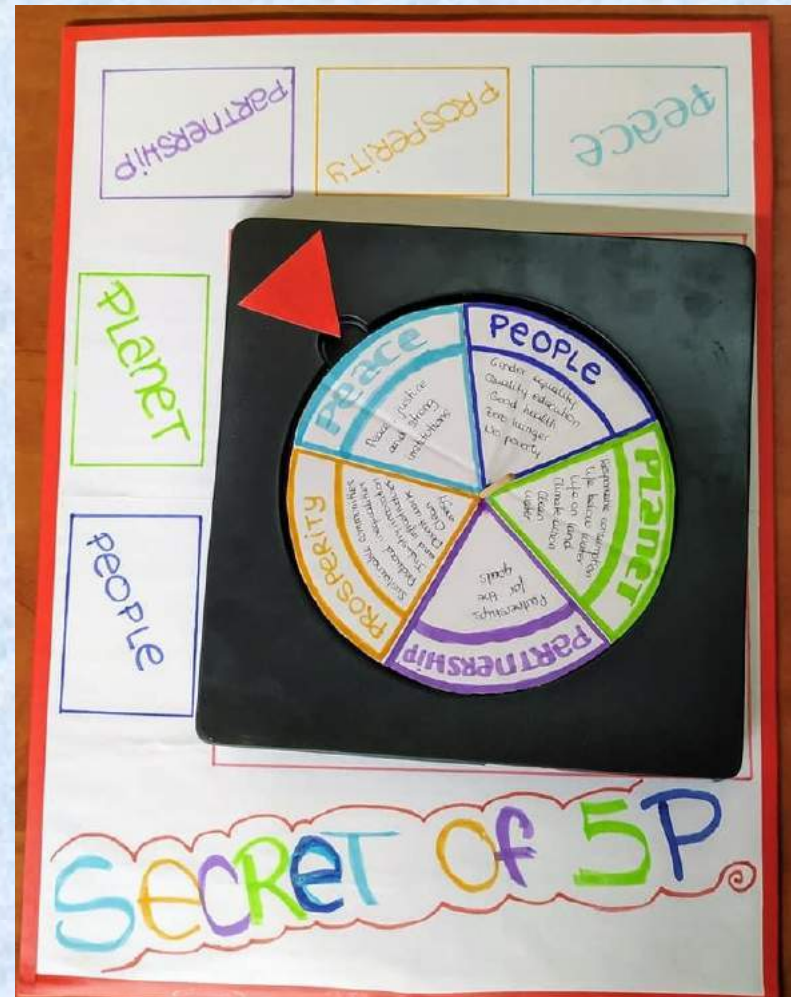 PARTNERSHIP
PROSPERITY
Peace
PLANET
PEOPLE
Peace
Peace, justice
and strong
institutions
PEOPLE
Gender equality
Quality education
Good health
Zero hunger
No poverty
PLANET
Responsible consumption
Life below water
Life on land
Climate action
Clean
water
PARTNERSHIP
Partnerships
for the
goals
PROSPERITY
Sustainable communities
Reduced inequalities
Industry, innovation
and infrastructure
Decent work
Clean
energy
SecReT Of 5P